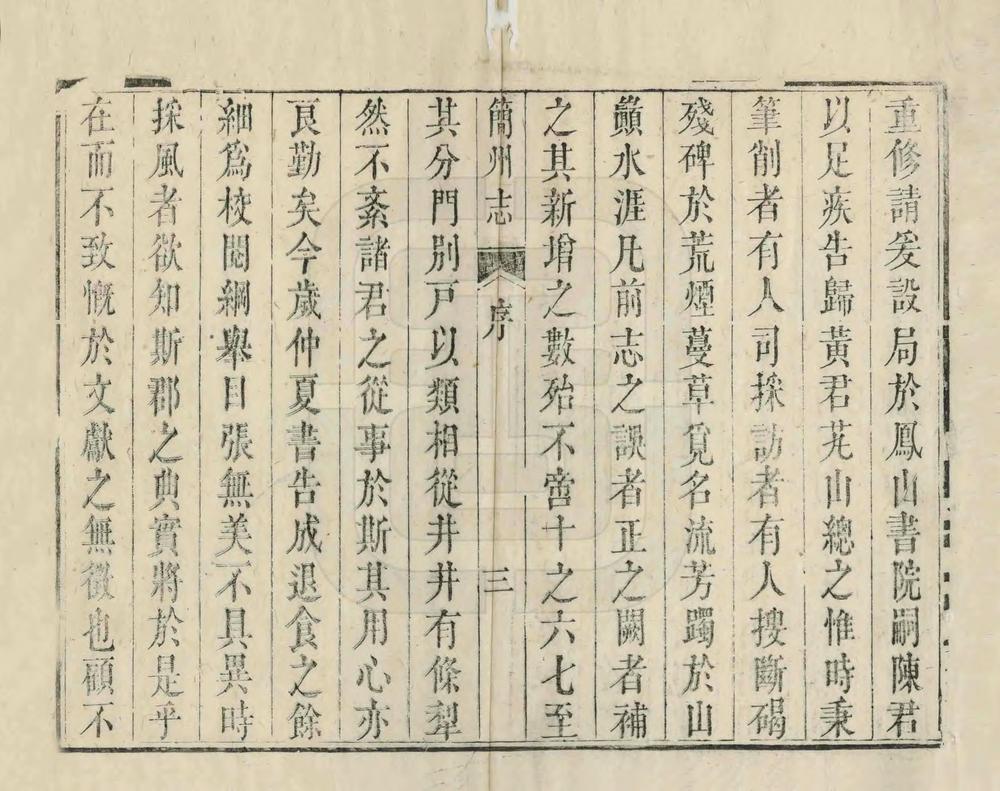 重修請爰設局於鳳山書院嗣陳君
以足疾告歸黃君芃山總之惟時秉
筆削者有人司採訪者有人搜斷碣
殘碑於荒煙蔓草覓名流芳躅於山
巔水涯凡前志之誤者正之闕者補
之其新增之數殆不啻十之六七至
簡州志 序 三
其分門別戸以類相從井井有條犁
然不紊諸君之從事於斯其用心亦
良勤矣今歲仲夏書告成退食之餘
細爲校閱綱舉目張無美不具異時
採風者欲知斯郡之典實將於是乎
在而不致慨於文獻之無徵也顧不